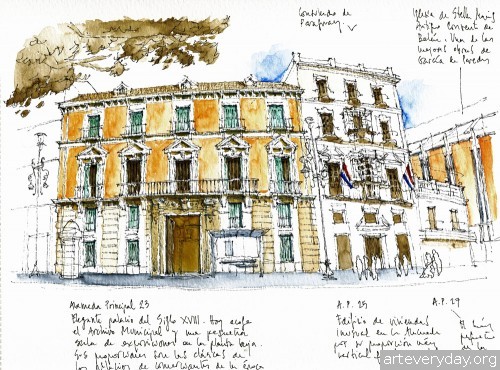 Consulado de
Paraguay
Iglesia de Stella Maris
Antiguo Convento de
Belén. Una de las
mejores obras de
García de Paredes
Alameda Principal 23
Elegante palacio del Siglo XVIII. Hoy acoge
el Archivo Municipal y una pequeña
sala de exposiciones en la planta baja.
Sus proporciones son las clásicas de
los palacios de comerciantes de la época
A.P. 25
Edificio de viviendas
inusual en la Alameda
por su proporción muy
vertical
A.P. 29
El más
pequeño
de la
arteveryday.org